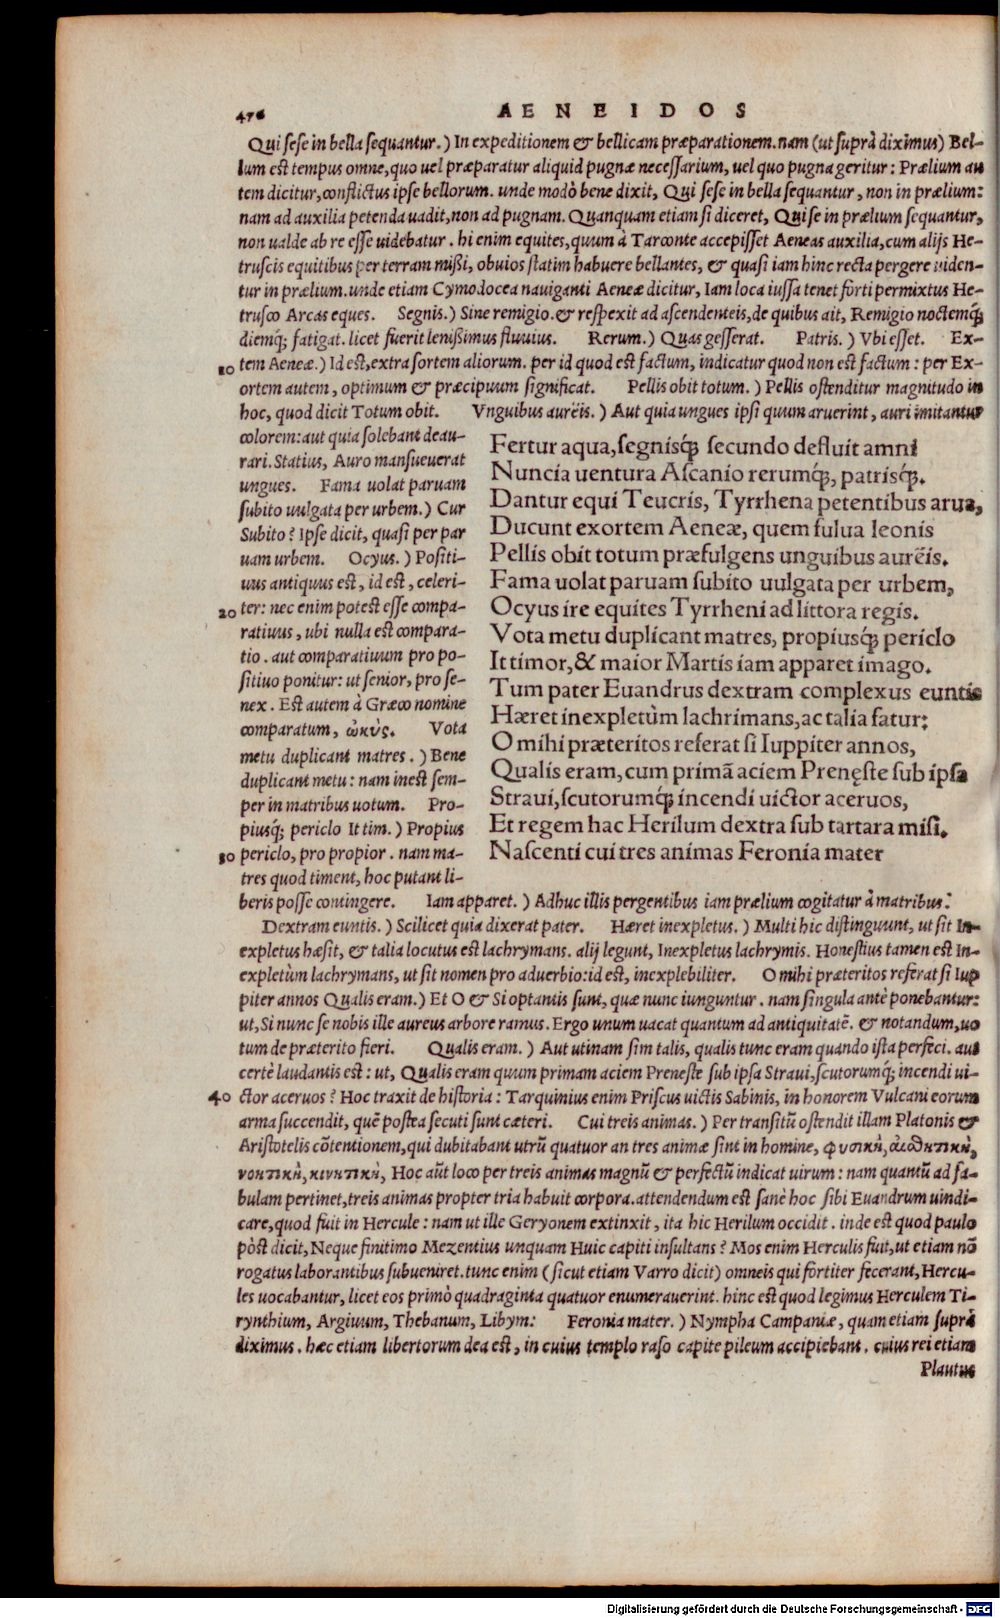 476
AENEIDOS
Qui sese in bella sequantur.) In expeditionem & bellicam præparationem. nam (ut suprà diximus) Bel-
lum est tempus omne, quo uel præparatur aliquid pugnæ necessarium, uel quo pugna geritur: Prælium au
tem dicitur, conflictus ipse bellorum. unde modò bene dixit, Qui sese in bella sequantur, non in prælium:
nam ad auxilia petenda uadit, non ad pugnam. Quanquam etiam si diceret, Qui se in prælium sequantur,
non ualde ab re esse uidebatur. hi enim equites, quum à Tarconte accepisset Aeneas auxilia, cum alijs He-
truscis equitibus per terram mißi, obuios statim habuere bellantes, & quasi iam hinc recta pergere uiden-
tur in prælium. unde etiam Cymodocea nauiganti Aeneæ dicitur, Iam loca iussa tenet forti permixtus He-
trusco Arcas eques. Segnis.) Sine remigio. & respexit ad ascendenteis, de quibus ait, Remigio noctemq́;
diemq́; fatigat. licet fuerit lenißimus fluuius. Rerum.) Quas gesserat. Patris.) Vbi esset. Ex-
10 tem Aeneæ.) Id est, extra sortem aliorum. per id quod est factum, indicatur quod non est factum: per Ex-
ortem autem, optimum & præcipuum significat. Pellis obit totum.) Pellis ostenditur magnitudo in
hoc, quod dicit Totum obit. Vnguibus aureis.) Aut quia ungues ipsi quum aruerint, auri imitantur
colorem: aut quia solebant deau-
rari. Statius, Auro mansueuerat
ungues. Fama uolat paruam
subito uulgata per urbem.) Cur
Subito? Ipse dicit, quasi per par
uam urbem. Ocyus.) Positi-
uus antiquus est, id est, celeri-
20 ter: nec enim potest esse compa-
ratiuus, ubi nulla est compara-
tio. aut comparatiuum pro po-
sitiuo ponitur: ut senior, pro se-
nex. Est autem à Græco nomine
comparatum, ὠκύς. Vota
metu duplicant matres.) Bene
duplicant metu: nam inest sem-
per in matribus uotum. Pro-
piusq́; periclo It tim.) Propius
30 periclo, pro propior. nam ma-
tres quod timent, hoc putant li-
Fertur aqua, segnisq́; secundo defluit amni
Nuncia uentura Ascanio rerumq́;, patrisq́;.
Dantur equi Teucris, Tyrrhena petentibus arua,
Ducunt exortem Aeneæ, quem fulua leonis
Pellis obit totum præfulgens unguibus aureis.
Fama uolat paruam subito uulgata per urbem,
Ocyus ire equites Tyrrheni ad littora regis.
Vota metu duplicant matres, propiusq́; periclo
It timor, & maior Martis iam apparet imago.
Tum pater Euandrus dextram complexus euntis
Hæret inexpletùm lachrimans, ac talia fatur:
O mihi præteritos referat si Iuppiter annos,
Qualis eram, cum primã aciem Prenęste sub ipsa
Straui, scutorumq́; incendi uictor aceruos,
Et regem hac Herilum dextra sub tartara misi.
Nascenti cui tres animas Feronia mater
beris posse contingere. Iam apparet.) Adhuc illis pergentibus iam prælium cogitatur à matribus.
Dextram euntis.) Scilicet quia dixerat pater. Hæret inexpletus.) Multi hic distinguunt, ut sit In-
expletus hæsit, & talia locutus est lachrymans. alij legunt, Inexpletus lachrymis. Honestius tamen est In-
expletùm lachrymans, ut sit nomen pro aduerbio: id est, inexplebiliter. O mihi præteritos referat si Iup
piter annos Qualis eram.) Et O & Si optantis sunt, quæ nunc iunguntur. nam singula antè ponebantur:
ut, Si nunc se nobis ille aureus arbore ramus. Ergo unum uacat quantum ad antiquitatẽ. & notandum, uo
tum de præterito fieri. Qualis eram.) Aut utinam sim talis, qualis tunc eram quando ista perfeci. aut
certè laudantis est: ut, Qualis eram quum primam aciem Preneste sub ipsa Straui, scutorumq́; incendi ui-
40 ctor aceruos? Hoc traxit de historia: Tarquinius enim Priscus uictis Sabinis, in honorem Vulcani eorum
arma succendit, quẽ postea secuti sunt cæteri. Cui treis animas.) Per transitũ ostendit illam Platonis &
Aristotelis cõtentionem, qui dubitabant utrũ quatuor an tres animæ sint in homine, φυσικὴ, αἰσθητικὴ,
νοητικὴ, κινητικὴ, Hoc aũt loco per treis animas magnũ & perfectũ indicat uirum: nam quantũ ad fa-
bulam pertinet, treis animas propter tria habuit corpora. attendendum est sanè hoc sibi Euandrum uindi-
care, quod fuit in Hercule: nam ut ille Geryonem extinxit, ita hic Herilum occidit. inde est quod paulo
pòst dicit, Neque finitimo Mezentius unquam Huic capiti insultans? Mos enim Herculis fuit, ut etiam nõ
rogatus laborantibus subueniret. tunc enim (sicut etiam Varro dicit) omneis qui fortiter fecerant, Hercu-
les uocabantur, licet eos primò quadraginta quatuor enumerauerint. hinc est quod legimus Herculem Ti-
rynthium, Argiuum, Thebanum, Libym: Feronia mater.) Nympha Campaniæ, quam etiam suprà
diximus. hæc etiam libertorum dea est, in cuius templo raso capite pileum accipiebant. cuius rei etiam
Plautus
Digitalisierung gefördert durch die Deutsche Forschungsgemeinschaft - DFG